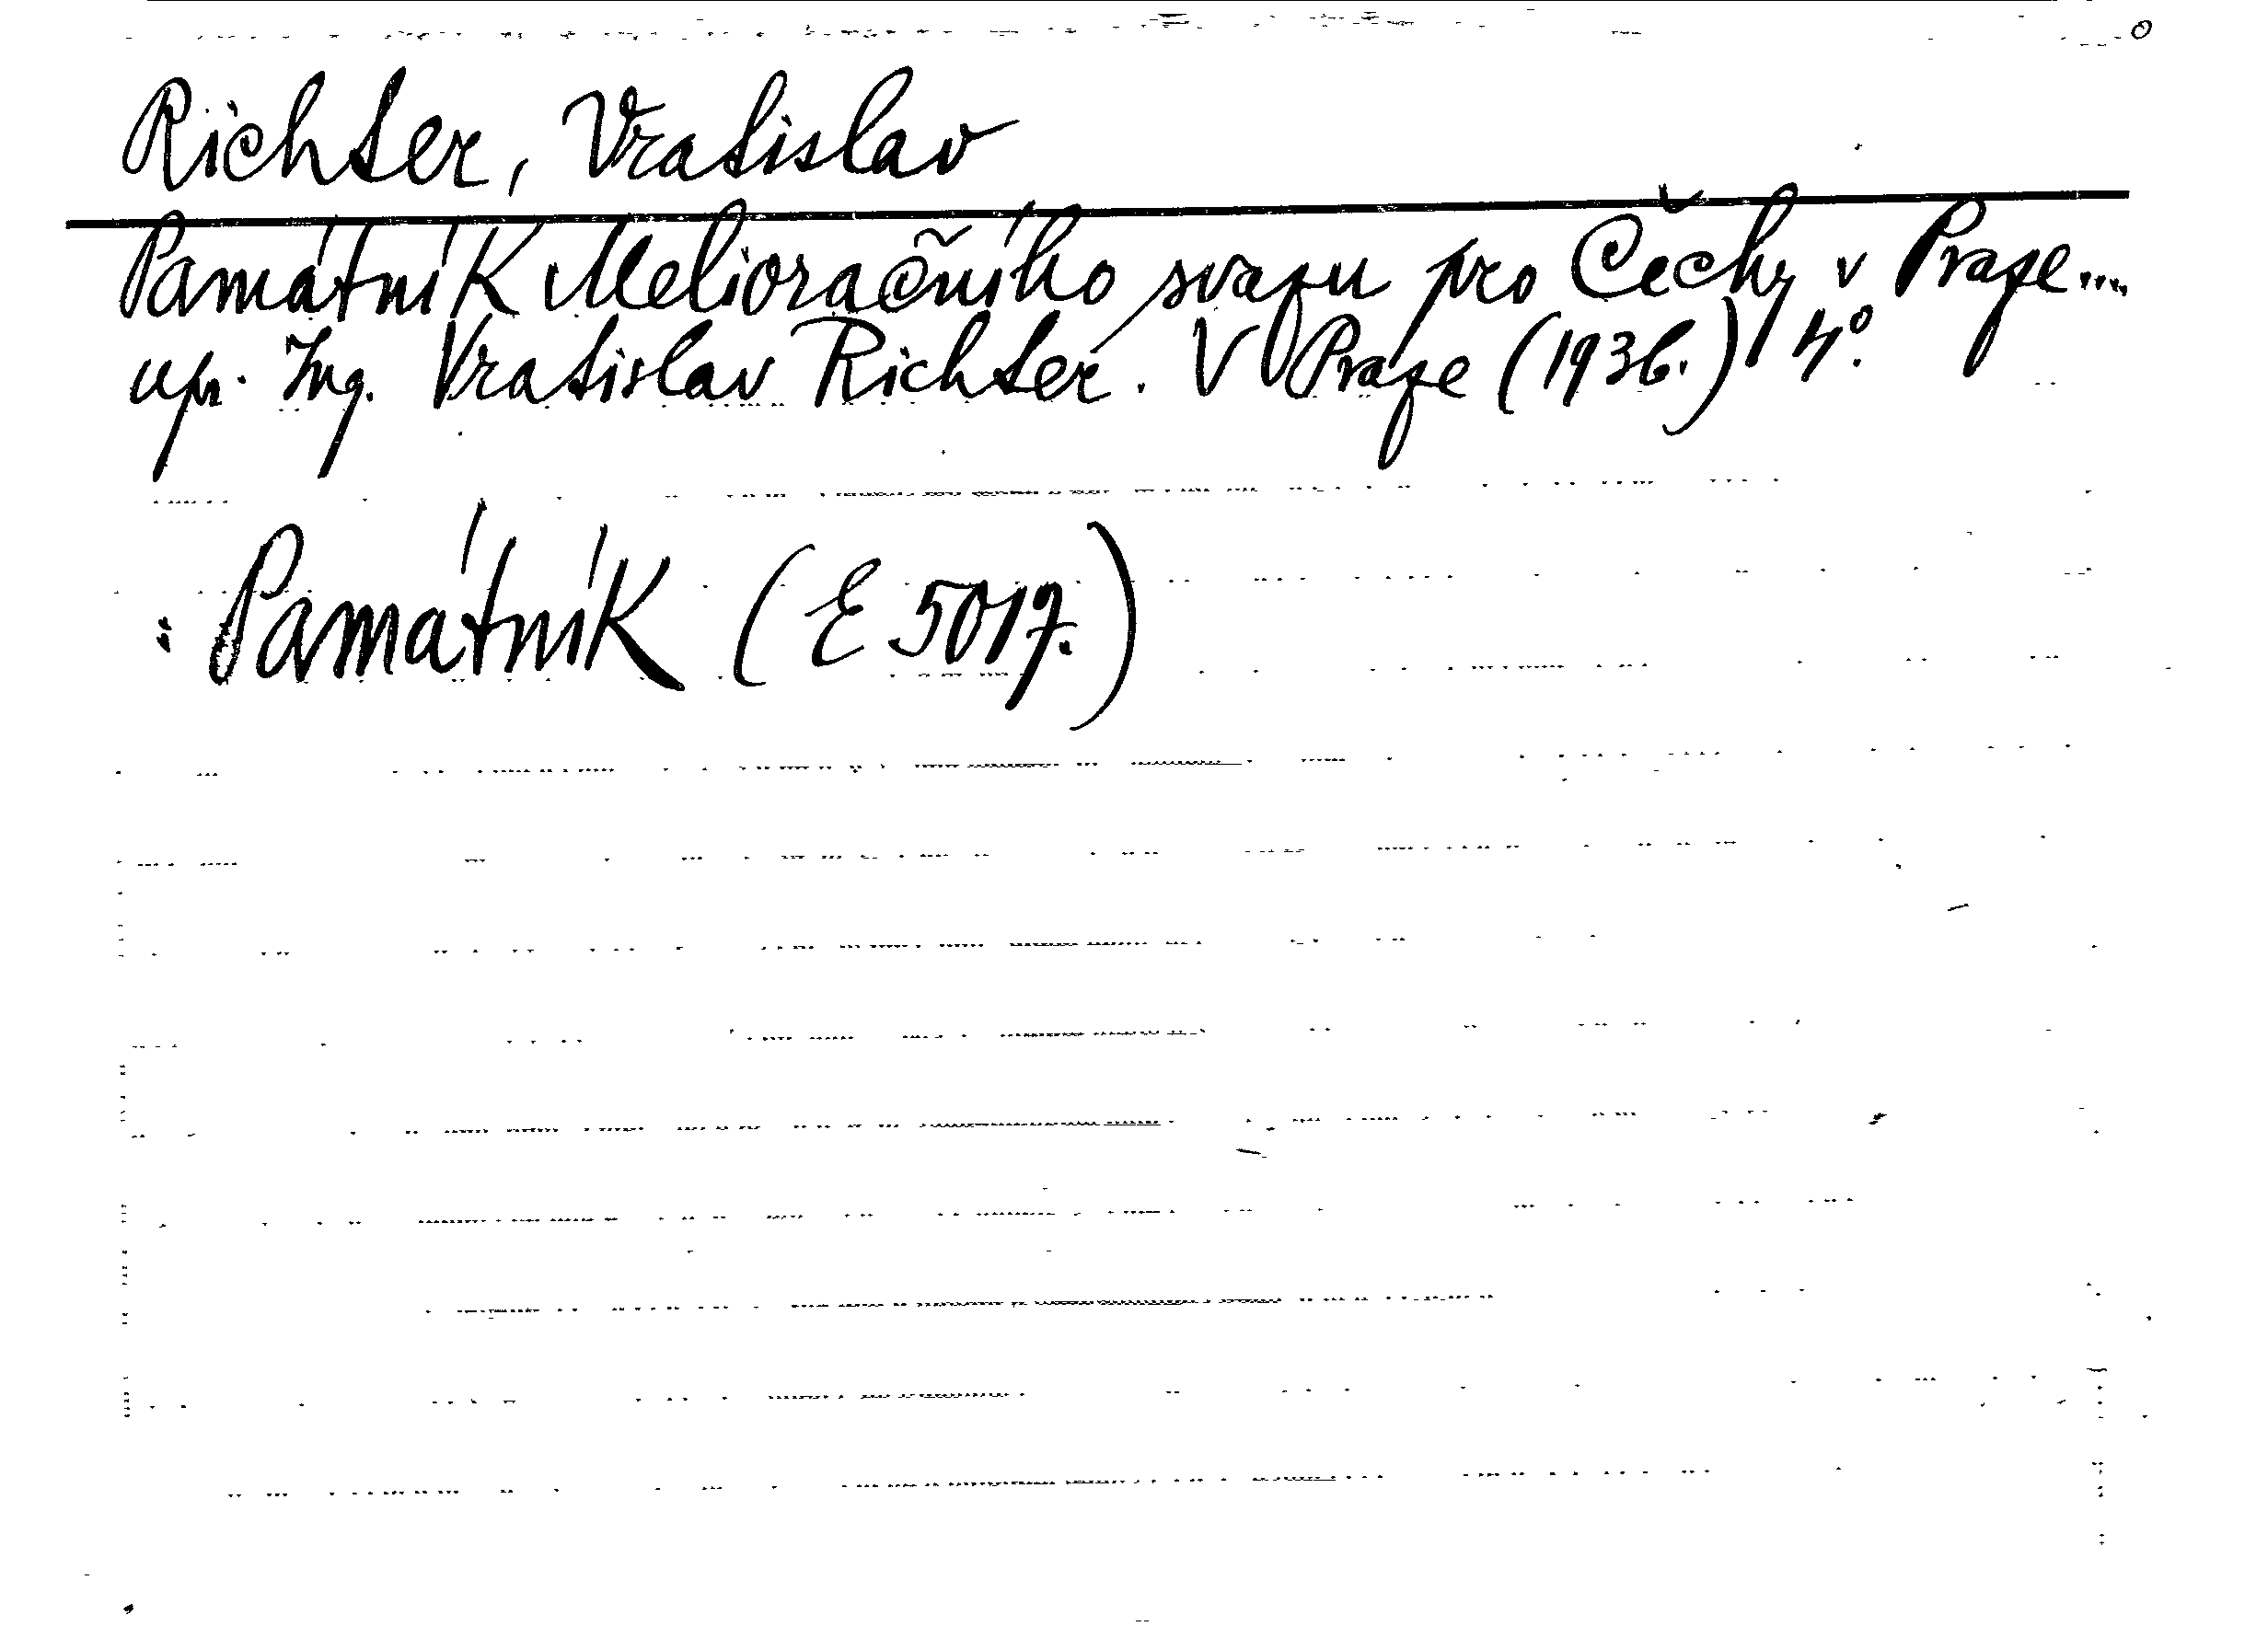 Richter, Vratislav
Památník Melioračního svazu pro Čechy v Praze....
upr. Ing. Vratislav Richter. V Praze (1936.) 4°.
: Památník (E 5017.)